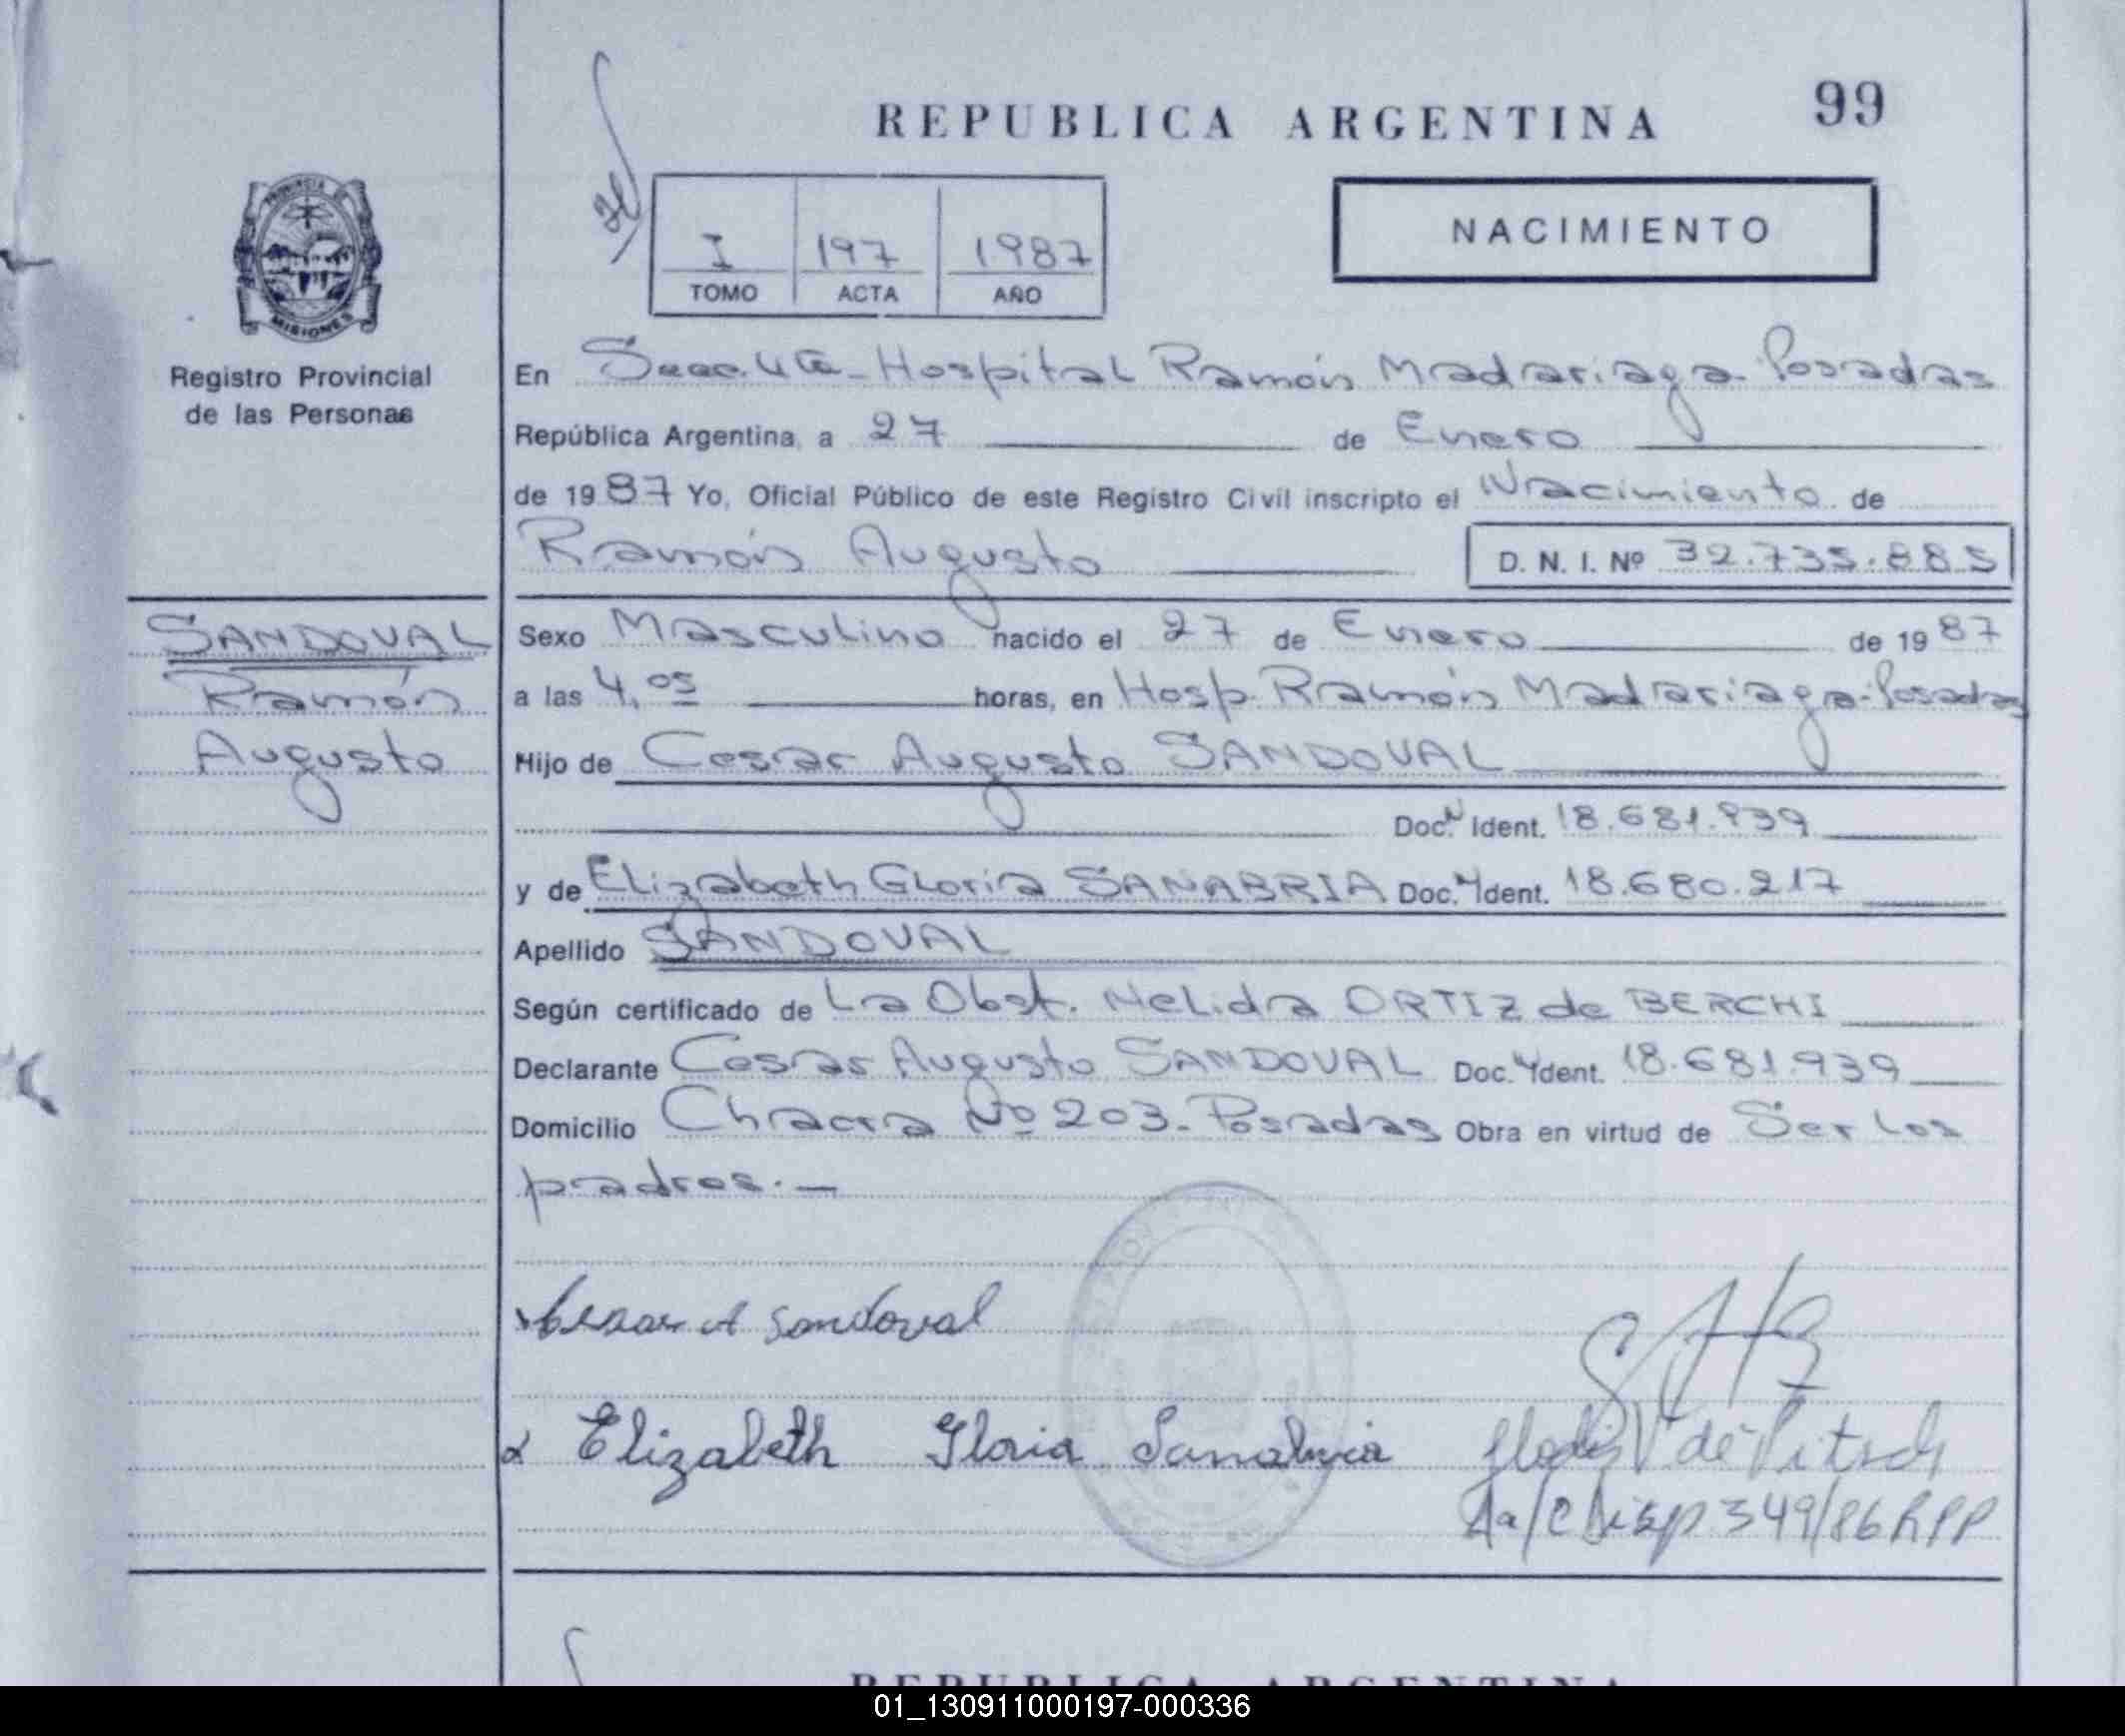 REPUBLICA ARGENTINA
99
I 197 1987
TOMO ACTA AÑO
NACIMIENTO
PROVINCIA DE
MISIONES
Registro Provincial
de las Personas
En Secc. 4ta - Hospital Ramón Madariaga - Posadas
República Argentina, a 27 de Enero
de 1987 Yo, Oficial Público de este Registro Civil inscripto el Nacimiento de
Ramón Augusto
D. N. I. Nº 32.735.885
SANDOVAL
Ramón
Augusto
Sexo Masculino nacido el 27 de Enero de 1987
a las 4,05 horas, en Hosp. Ramón Madariaga - Posadas
Hijo de Cesar Augusto SANDOVAL
Doc. N Ident. 18.681.939
y de Elizabeth Gloria SANABRIA Doc. Ident. 18.680.217
Apellido SANDOVAL
Según certificado de La Obst. Nelida ORTIZ de BERCHI
Declarante Cesar Augusto SANDOVAL Doc. Ident. 18.681.939
Domicilio Chacra Nº 203 - Posadas Obra en virtud de Ser los
padres. -
Cesar A Sandoval
Elizabeth Gloria Sanabria
V de
Aa/c Disp 349/86 RPP
REPUBLICA ARGENTINA
01_130911000197-000336